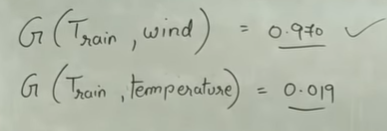 G(Train, wind) = 0.970 ✓
G(Train, temperature) = 0.019